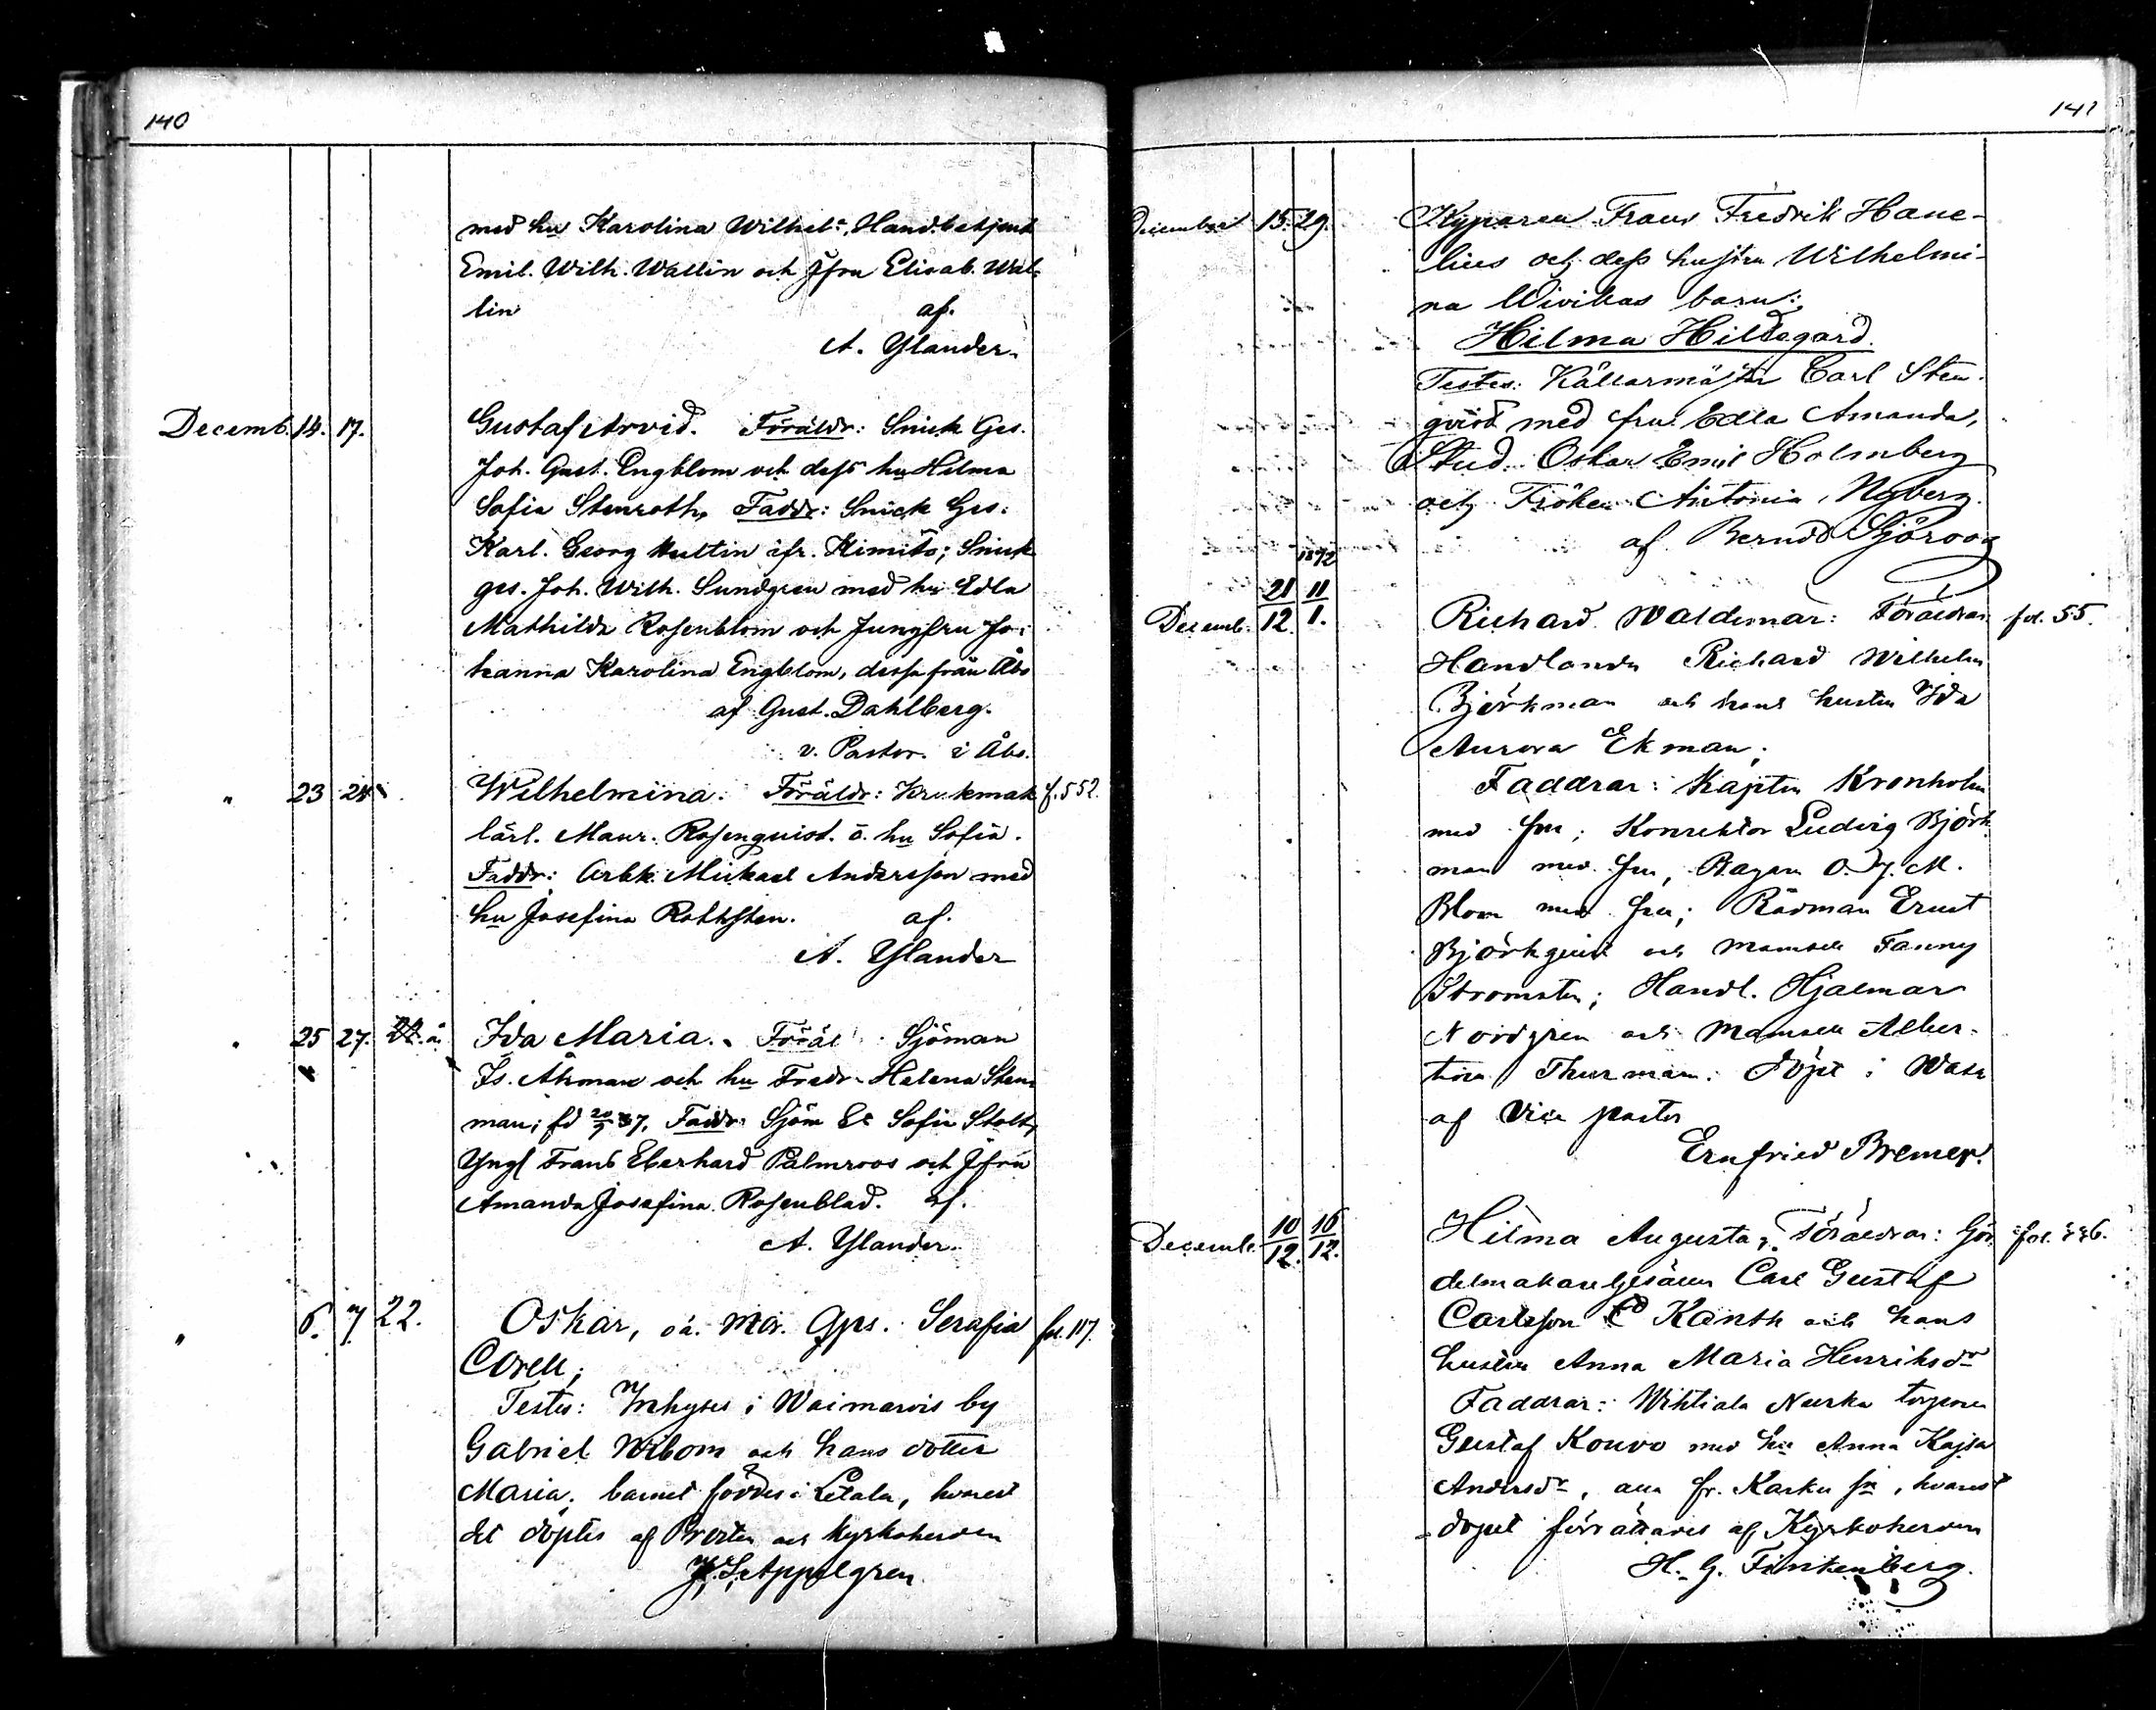 140
med hu Karolina Wilhel:a, Handbetjent
Emil. Wilh. Wallin och Jfru Elisab. Wal-
lin af.
A. Ylander.
Decemb. 14. 17. Gustaf Arvid. Föräldr: Snick Ges.
Joh. Gust. Engblom och dess hu Hilma
Sofia Stenroth, Faddr: Snick Ges.
Karl. Georg Hultin ifr. Kimito; Snick
ges. Joh. Wilh. Sundgren med hu Edla
Mathilda Rosenblom och Jungfru Jo-
hanna Karolina Engblom, dessa från Åbo
af Gust. Dahlberg.
v. Pastor. i Åbo.
" 23 24 Wilhelmina. Föräldr: Krukmak f. 552.
lärl. Maur. Rosenquist. o. hu Sofia.
Faddr: Arbk. Mickael Andersson med
hu Josefina Rothsten. af.
A. Ylander
" 25 27. Ida Maria. Föräl Sjöman
Is. Åkman och hu Fredr. Helena Sten-
man; fd 20/9 37. Faddr Sjöm Sofia Stolt,
Yngl Frans Eberhard Palmroos och Jfru
Amanda Josefina Rosenblad. af.
A. Ylander.
" 6. 7 22. Oskar, oä. Mor. Gps. Serafia fol. 117.
Corell;
Testes: Inhyses i Waimarois by
Gabriel Wibom och hans dotter
Maria; barnet föddes i Letala, hvarest
det döptes af Prosten och Kyrkoherden
Appelgren
141
December 15. 29. Kyparen Frans Fredrik Hane-
lius och dess hustru Wilhelmi-
na Wivikas barn:
Hilma Hildegard.
Testes: Källarmäster Carl Sten-
qvist med fru Edla Amanda,
Stud. Oskar Emil Holmberg
och Fröken Antonia Nyberg.
af Berndt Sjöroos
1872
Decemb. 21/12. 11/1. Richard Waldemar: Föräldrar fol. 55.
Handlanden Richard Wilhelm
Björkman och hans hustru Ida
Aurora Ekman;
Faddrar: Kapten Kronholm
med fru; Konrektor Ludvig Björk
man med fru, O. J. M.
Blom med fru; Rådman Ernst
Björkqvist och Mamsell Fanny
Stromsten; Handl. Hjalmar
Nordgren och Mamsell Alber-
tina Thurman. Döpt i Wasa
af Vice pastor
Ernfried Bremer.
Decemb. 10/12. 16/12. Hilma Augusta, Föräldrar: Gör fol. 556.
delmakaregesällen Carl Gustaf
Carlsson Kanth och hans
hustru Anna Maria Henriksdr
Faddrar: Wihtiala Nurka torparen
Gustaf Kouvo med hu Anna Kajsa
Andersdr, alla fr. Karku sn, hvarest
dopet förrättades af Kyrkoherden
H. G. Finkenberg.